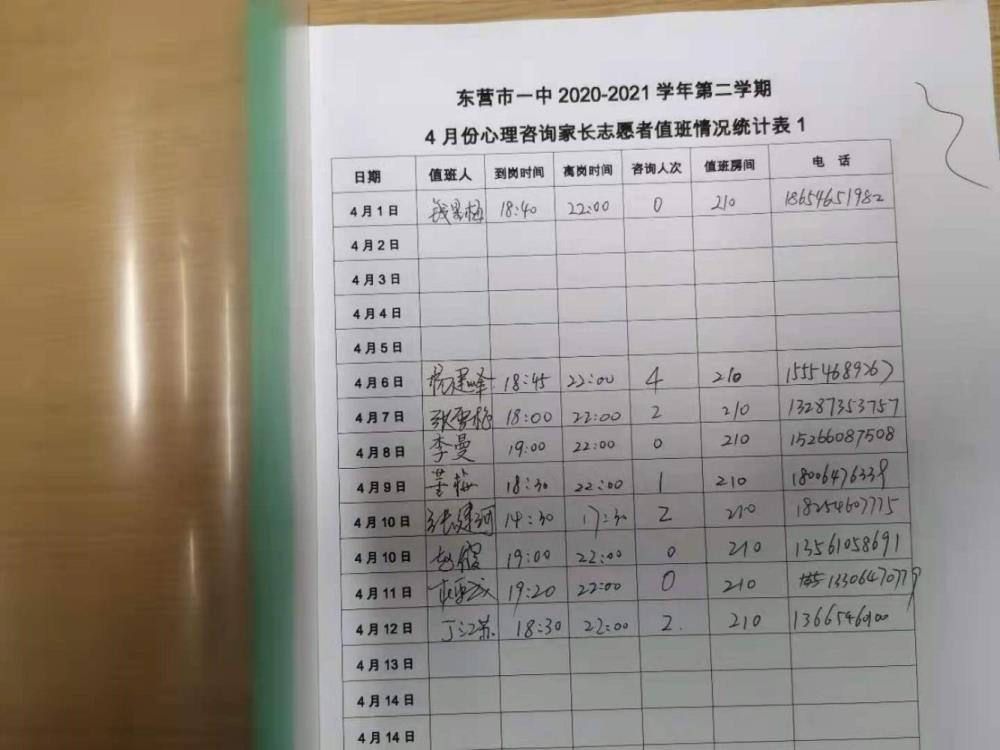 东营市一中 2020-2021 学年第二学期
4 月份心理咨询家长志愿者值班情况统计表 1
日期 值班人 到岗时间 离岗时间 咨询人次 值班房间 电 话
4 月 1 日 18:40 22:00 0 210 18654651982
4 月 2 日
4 月 3 日
4 月 4 日
4 月 5 日
4 月 6 日 杨建峰 18:45 22:00 4 210 15554689267
4 月 7 日 张雪梅 18:00 22:00 2 210 13287353757
4 月 8 日 李曼 19:00 22:00 0 210 15266087508
4 月 9 日 董梅 18:30 22:00 1 210 18006476339
4 月 10 日 14:30 17:30 2 210 18254607775
4 月 10 日 19:00 22:00 0 210 13561058691
4 月 11 日 19:20 22:00 0 210 13306470779
4 月 12 日 丁江苏 18:30 22:00 2. 210
4 月 13 日
4 月 14 日
4 月 14 日